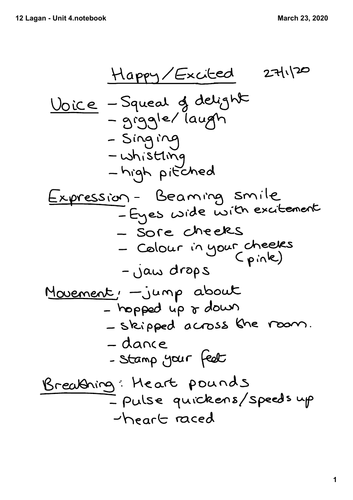 12 Lagan - Unit 4.notebook March 23, 2020
Happy/Excited 27/1/20
Voice - Squeal of delight
- giggle/laugh
- Singing
- whistling
- high pitched
Expression - Beaming smile
- Eyes wide with excitement
- Sore cheeks
- Colour in your cheeks
(pink)
- jaw drops
Movement: - jump about
- hopped up & down
- skipped across the room.
- dance
- stamp your feet
Breathing: Heart pounds
- pulse quickens/speeds up
- heart raced
1